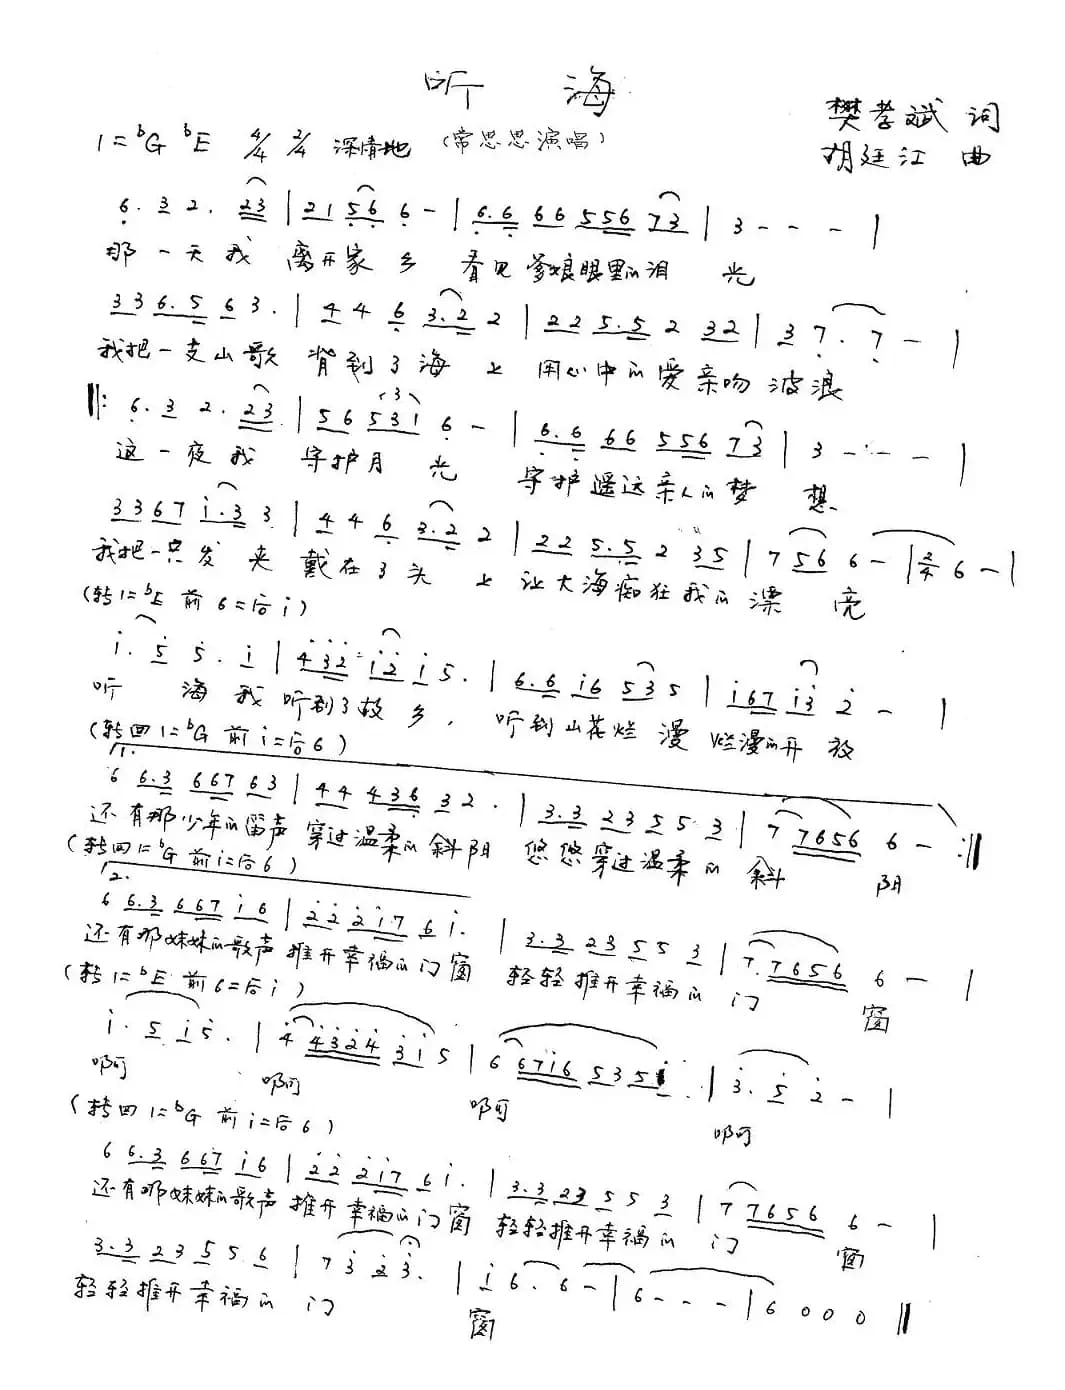 听 海
樊孝斌 词
1=ᵇG ᵇE 4/4 2/4 深情地 (常思思演唱)
胡廷江 曲
6. 3 2. 23 | 21 56 6 - | 6.6 66 556 73 | 3 - - - |
那一天我 离开家乡 看见爹娘眼里的泪 光
336.5 63. | 4 4 6 3.2 2 | 22 5.5 2 32 | 3 7. 7 - |
我把一支山歌 背到了海 上 用心中的爱亲吻波浪
‖: 6. 3 2. 23. | 56 531 6 - | 6.6 66 556 73 | 3 - - - |
这一夜我 守护月 光 守护遥远亲人的梦 想
3367 i.3 3 | 4 4 6 3.2 2 | 22 5.5 2 35 | 7 56 6 - | 2/4 6 - |
我把一只发 夹 戴在了头 上 让大海痴狂我的漂 亮
(转1=ᵇE 前6=后i)
i. 5 5. i | 432 i2 i5. | 6.6 i6 535 | i67 i3 2 - |
听 海 我听到了故乡, 听到山花烂 漫 烂漫的开 放
(转回1=ᵇG 前i=后6)
1.
6 6.3 667 63 | 44 436 32. | 3.3 23 5 5 3 | 7 7656 6 - :‖
还有那少年的笛声 穿过温柔的斜阳 悠悠穿过温柔的 斜 阳
(转回1=ᵇG 前i=后6)
2.
6 6.3 667 i6 | 22 2i7 6i. | 3.3 23 5 5 3 | 7. 7656 6 - |
还有那妹妹的歌声 推开幸福的门窗 轻轻推开幸福的 门 窗
(转1=ᵇE 前6=后i)
i. 5 i5. | 4 4324 3i5 | 6 67i6 535i | 3. 5 2 - |
啊 啊 啊 啊
(转回1=ᵇG 前i=后6)
6 6.3 667 i6 | 22 2i7 6i. | 3.3 23 5 5 3 | 7 7656 6 - |
还有那妹妹的歌声 推开幸福的门窗 轻轻推开幸福的 门 窗
3.3 23 5 5 6 | 7 3 2 3. | i 6. 6 - | 6 - - - | 6 0 0 0 ‖
轻轻推开幸福的 门 窗